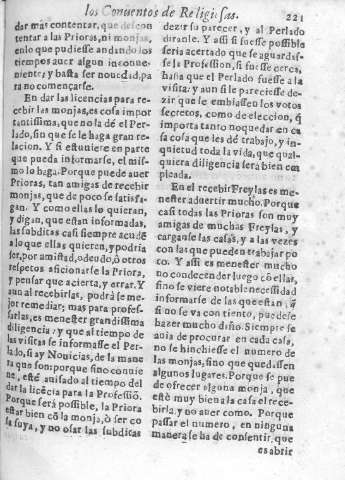 los Conuentos de Religiosas.
221
dar mas contentar, que descon
tentar a las Prioras, ni monjas,
en lo que pudiesse andando los
tiempos auer algun inconue-
niente; y basta ser nouedad, pa
ra no començarse.
En dar las licencias para re-
cebir las monjas, es cosa impor
tantissima, que no la dè el Per-
lado, sin que se le haga gran re-
lacion. Y si estuuiere en parte
que pueda informarse, el mis-
mo lo haga. Porque puede auer
Prioras, tan amigas de recebir
monjas, que de poco se satisfa-
gan. Y como ellas lo quieran,
y digan, que estan informadas,
las subditas casi siempre acudē
a lo que ellas quieren, y podria
ser, por amistad, o deudo, ò otros
respetos aficionarse la Priora,
y pensar que acierta, y errar. Y
aun al recebirlas, podrà se me-
jor remediar; mas para profes-
sarlas, es menester grandissima
diligencia: y que al tiempo de
las visitas se informasse el Per-
lado, si ay Nouicias, de la mane
ra que son: porque sino conuie
ne, estè auisado al tiempo del
dar la licēcia para la Professiō.
Porque serà possible, la Priora
estar bien cō la monja, ò ser co
sa suya, y no osar las subditas
dezir su parecer, y al Perlado
diranle. Y assi si fuesse possible
seria acertado que se aguardas-
se la Profession, si fuesse cerca,
hasta que el Perlado fuesse a la
visita: y aun si le pareciesse de-
zir que le embiassen los votos
secretos, como de eleccion, q̄
importa tanto no quedar en ca
sa cosa que les dè trabajo, y in-
quietud toda la vida, que qual-
quiera diligencia serà bien em
pleada.
En el recebir Freylas es me-
nester aduertir mucho. Porque
casi todas las Prioras son muy
amigas de muchas Freylas, y
carganse las casas, y a las vezes
con las que pueden trabajar po
co. Y assi es menester mucho
no condecender luego cō ellas,
sino se viere notable necessidad
informarse de las que estan: q̄
si no se va con tiento, puedese
hazer mucho daño. Siempre se
auia de procurar en cada casa,
no se hinchiesse el numero de
las monjas, sino que quedassen
algunos lugares. Porque se pue
de ofrecer alguna monja, que
estè muy bien a la casa el rece-
birla, y no auer como. Porque
passar el numero, en ninguna
manera se ha de consentir, que
es abrir